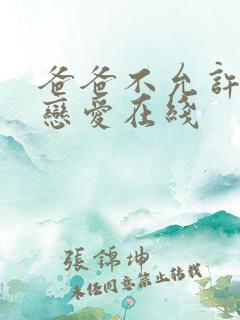 爸爸不允許
戀愛在綫
張錦坤
未經同意禁止轉載